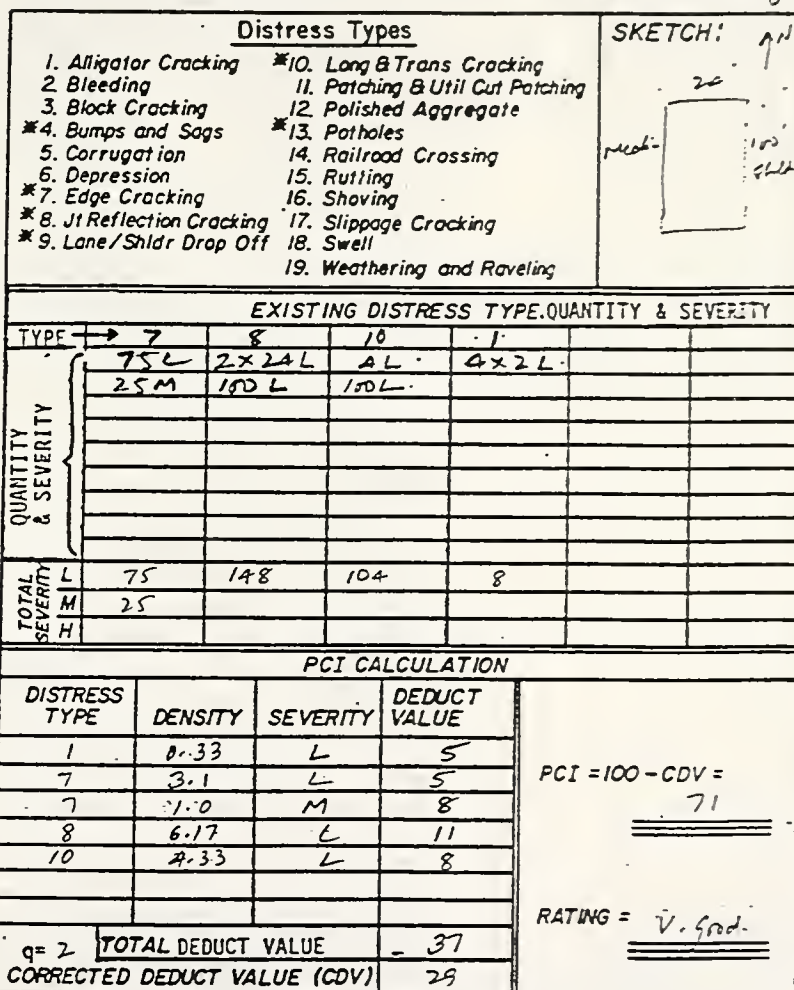 Distress Types
1. Alligator Cracking
2 Bleeding
3. Block Cracking
*4. Bumps and Sags
5. Corrugation
6. Depression
*7. Edge Cracking
*8. Jt Reflection Cracking
*9. Lane/Shldr Drop Off
*10. Long & Trans Cracking
11. Patching & Util Cut Patching
12. Polished Aggregate
*13. Potholes
14. Railroad Crossing
15. Rutting
16. Shoving
17. Slippage Cracking
18. Swell
19. Weathering and Raveling
SKETCH: N
24
100'
EXISTING DISTRESS TYPE.QUANTITY & SEVERITY
TYPE → 7 8 10 1
QUANTITY & SEVERITY
75L 2x24L 4L 4x2L
25M 100L 100L
TOTAL SEVERITY
L 75 148 104 8
M 25
H
PCI CALCULATION
DISTRESS TYPE DENSITY SEVERITY DEDUCT VALUE
1 0.33 L 5
7 3.1 L 5
7 1.0 M 8
8 6.17 L 11
10 4.33 L 8
q= 2 TOTAL DEDUCT VALUE 37
CORRECTED DEDUCT VALUE (CDV) 29
PCI =100-CDV =
71
RATING = V. Good.